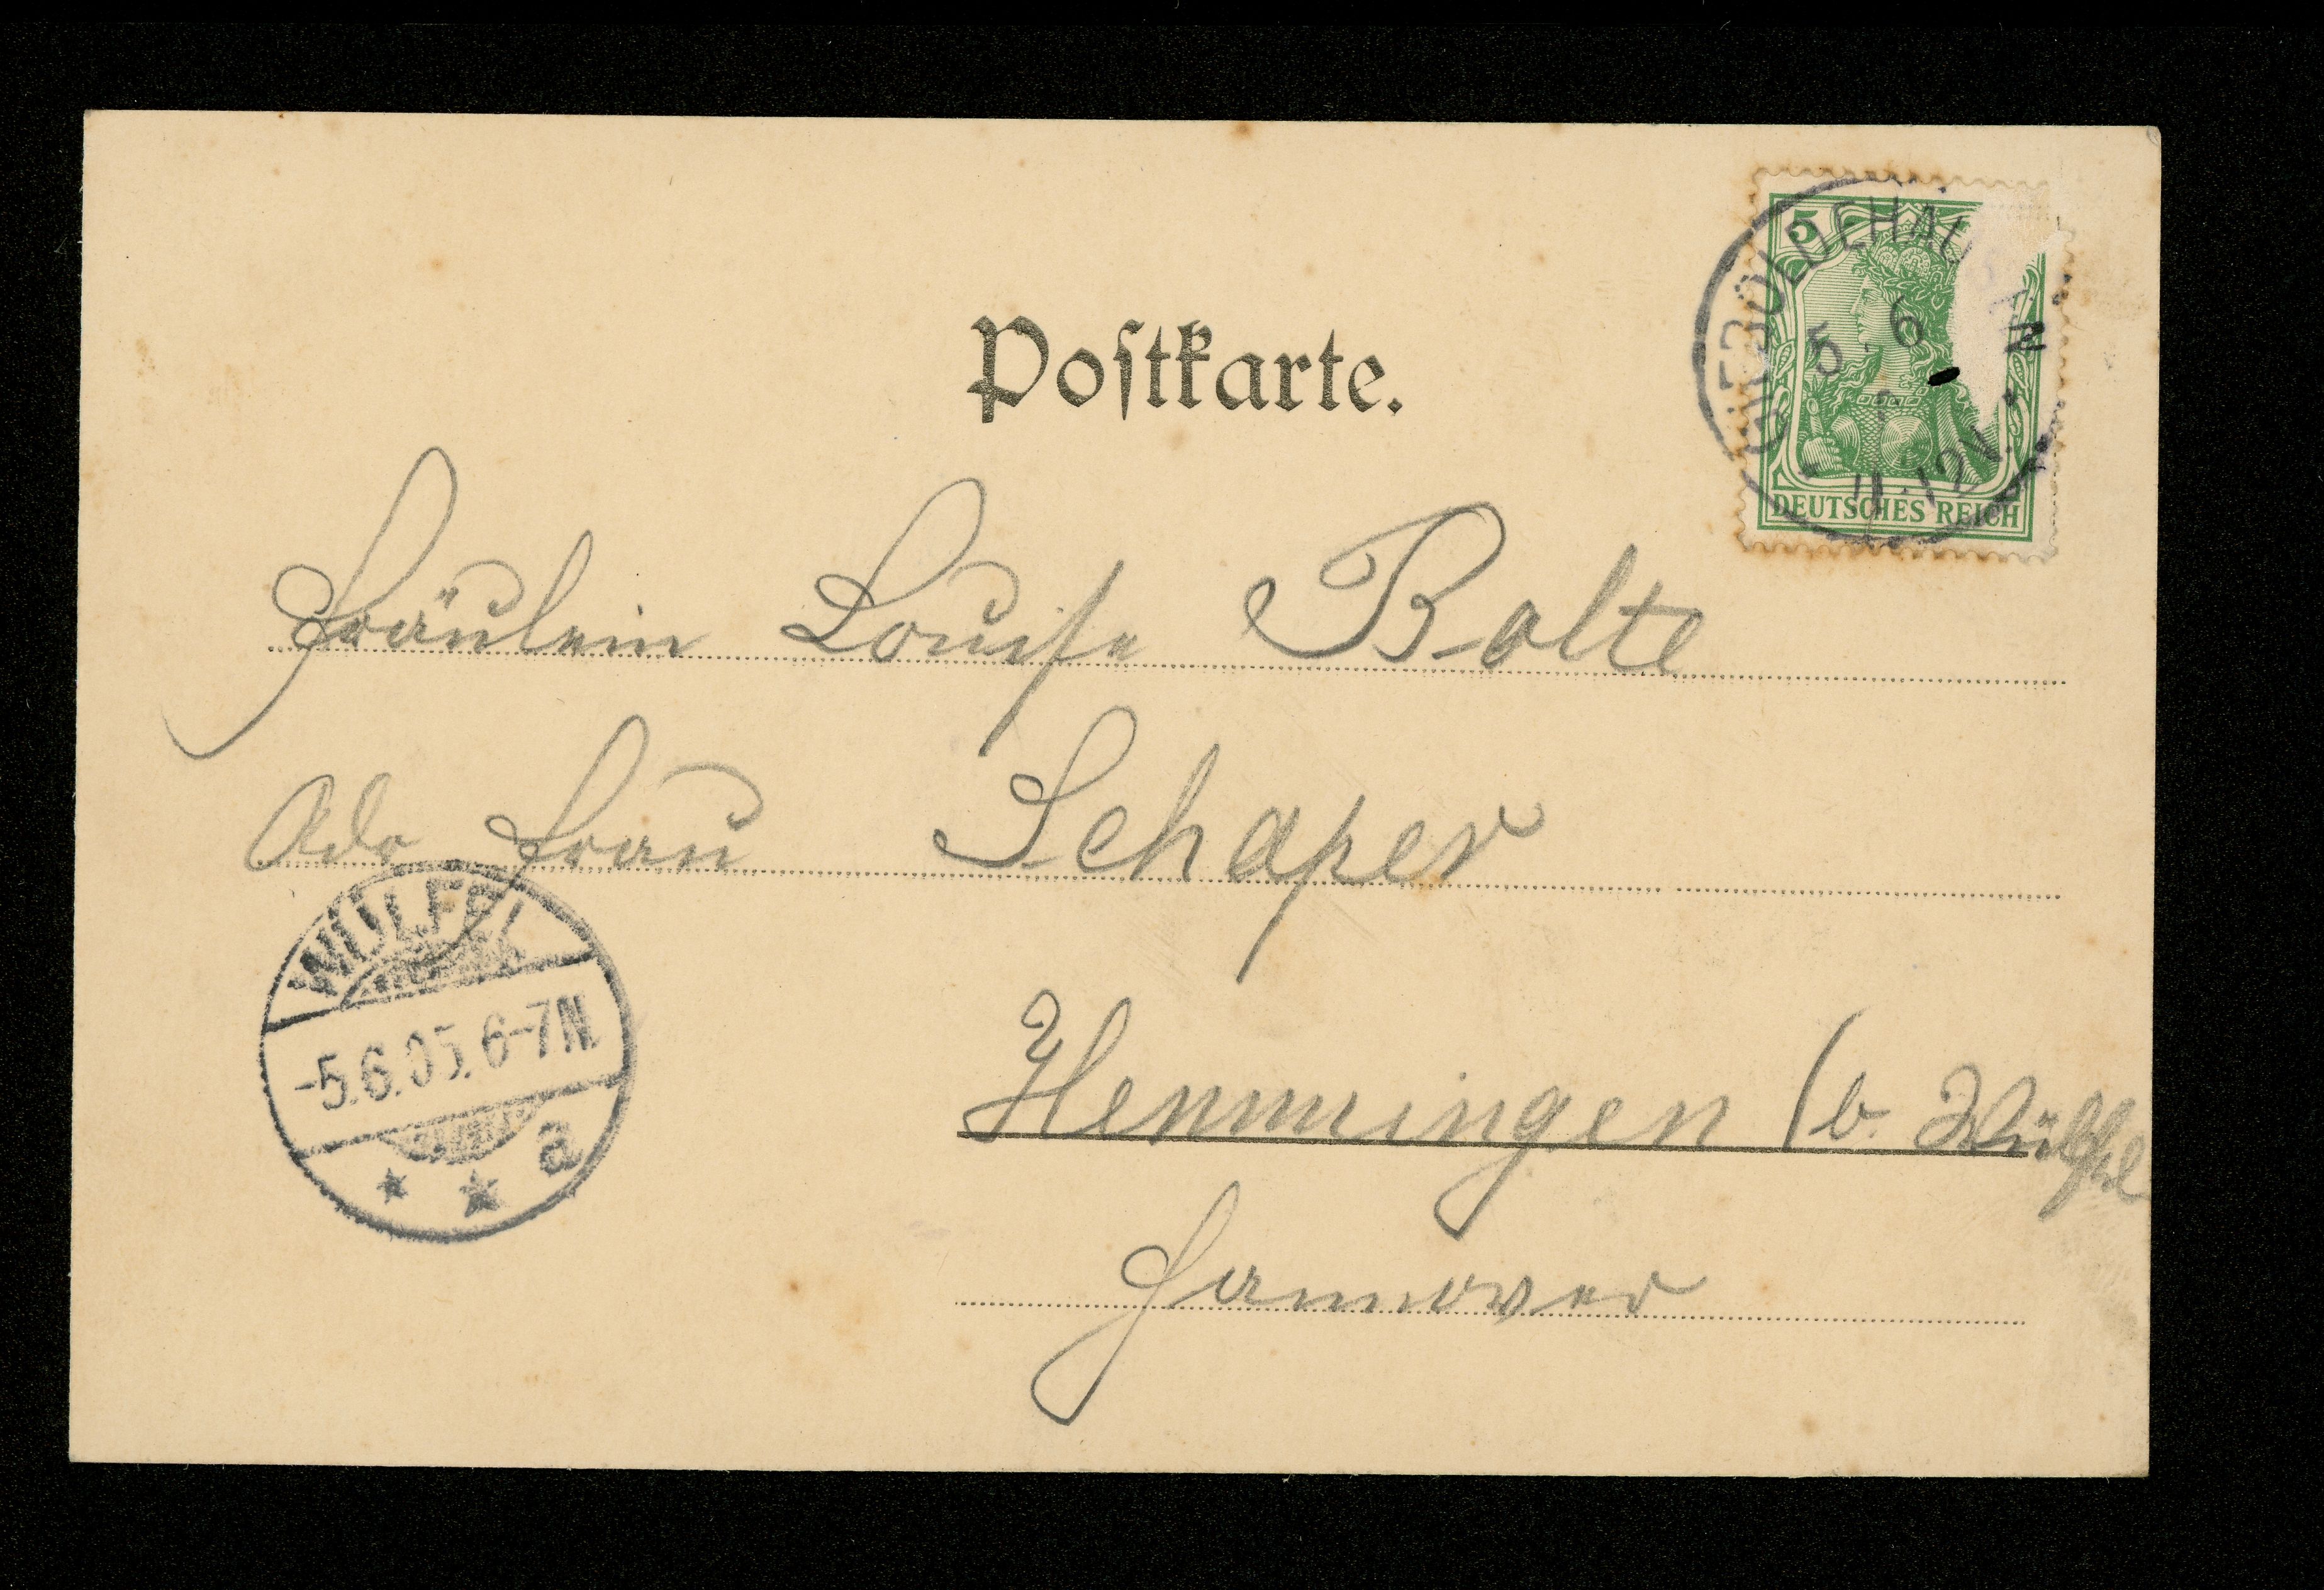 Postkarte.
5
DEUTSCHES REICH
5. 6
11-12V.
Fräulein Louise Bolte
Adr Frau Schaper
WÜLFEL
-5.6.05. 6-7N
a
Hemmingen (b. Wülfel
Hannover